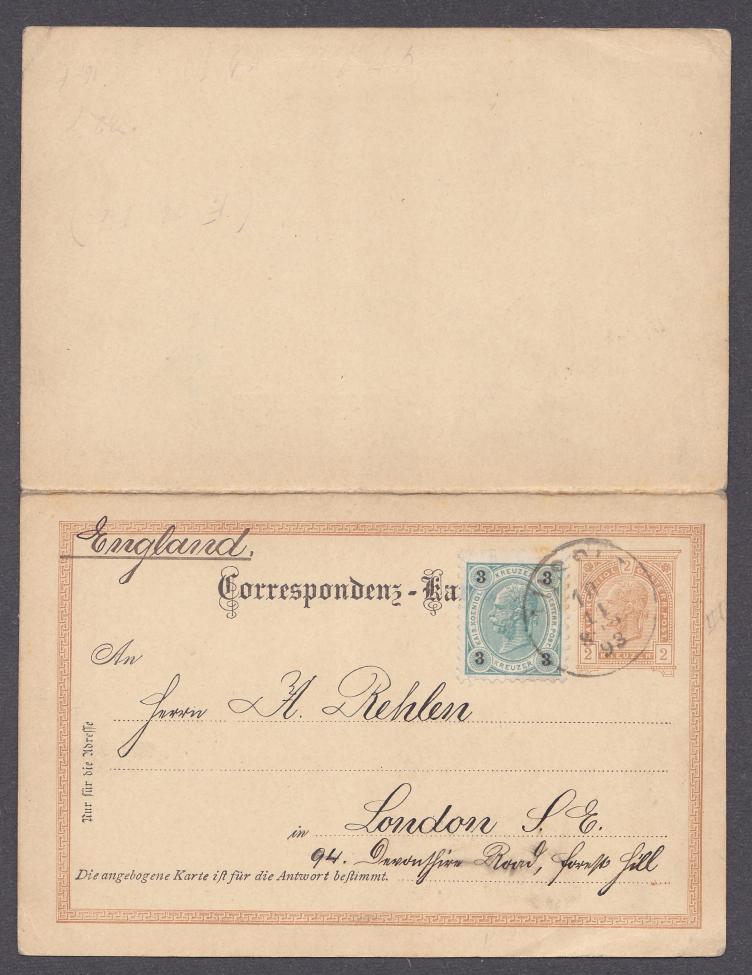 England.
Correspondenz-Ka
3 KREUZER 3
KAIS. KOENIGL. OESTERR. POST
3 KREUZER 3
2
2 KREUZER 2
10
11
93
An
Herrn A. Rehlen
Nur für die Adresse
in London S. E.
94. Devonshire Road, Forest Hill
Die angebogene Karte ist für die Antwort bestimmt.